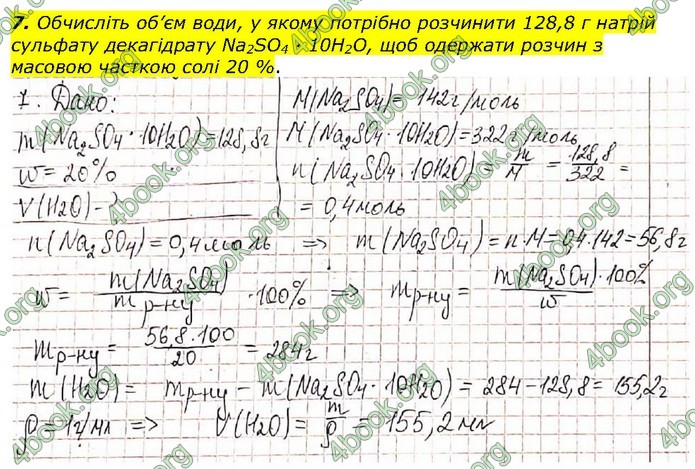 7. Обчисліть об’єм води, у якому потрібно розчинити 128,8 г натрій
сульфату декагідрату Na₂SO₄ · 10H₂O, щоб одержати розчин з
масовою часткою солі 20 %.
7. Дано:
m(Na₂SO₄ · 10H₂O)=128,8г
w=20%
V(H₂O)-?
M(Na₂SO₄)= 142г/моль
M(Na₂SO₄ · 10H₂O)=322г/моль
n(Na₂SO₄ · 10H₂O)= m/M = 128,8/322 =
= 0,4моль
n(Na₂SO₄)=0,4моль => m(Na₂SO₄)=n·M=0,4·142=56,8г
w= m(Na₂SO₄)/mр-ну ·100% => mр-ну = m(Na₂SO₄)·100%/w
mр-ну = 56,8·100/20 = 284г
m(H₂O)= mр-ну - m(Na₂SO₄·10H₂O)=284-128,8=155,2г
ρ=1г/мл => V(H₂O)= m/ρ = 155,2мл
4book.org